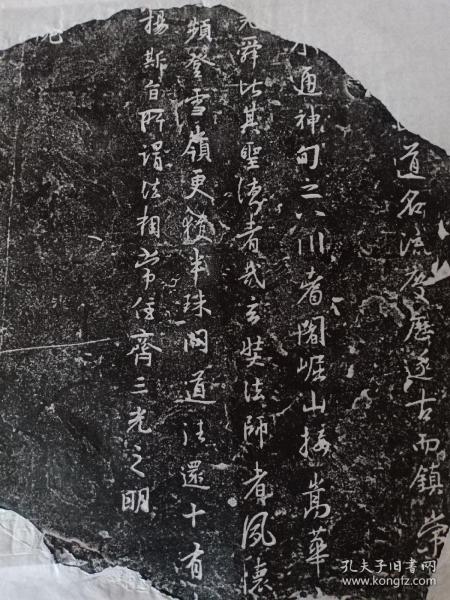 道名流慶歷遂古而鎮常
水通神甸之八川耆闍崛山接嵩華
堯舜比其聖德者哉玄奘法師者夙懷
頻登雪嶺更獲半珠問道法還十有
揚斯旨所謂法相常住齊三光之明
孔夫子旧书网
https://kongfz.com/